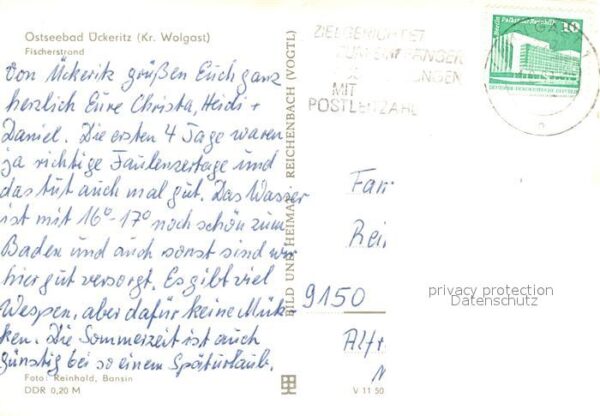 Ostseebad Ückeritz (Kr. Wolgast)
Fischerstrand
Von Ückeritz grüßen Euch ganz
herzlich Eure Christa, Heidi +
Daniel. Die ersten 4 Tage waren
ja richtige Faulenzertage und
das tut auch mal gut. Das Wasser
ist mit 16°-17° noch schön zum
Baden und auch sonst sind wir
hier gut versorgt. Es gibt viel
Wespen, aber dafür keine Mük-
ken. Die Sommerzeit ist auch
günstig bei so einem Späturlaub.
Foto: Reinhold, Bansin
DDR 0,20 M
BILD UND HEIMAT REICHENBACH (VOGTL)
V 11 50
ZIELGERICHTET
ZUM EMPFÄNGER
MIT
POSTLEITZAHL
10
Fam
Rei
9150
Alfr
privacy protection
Datenschutz